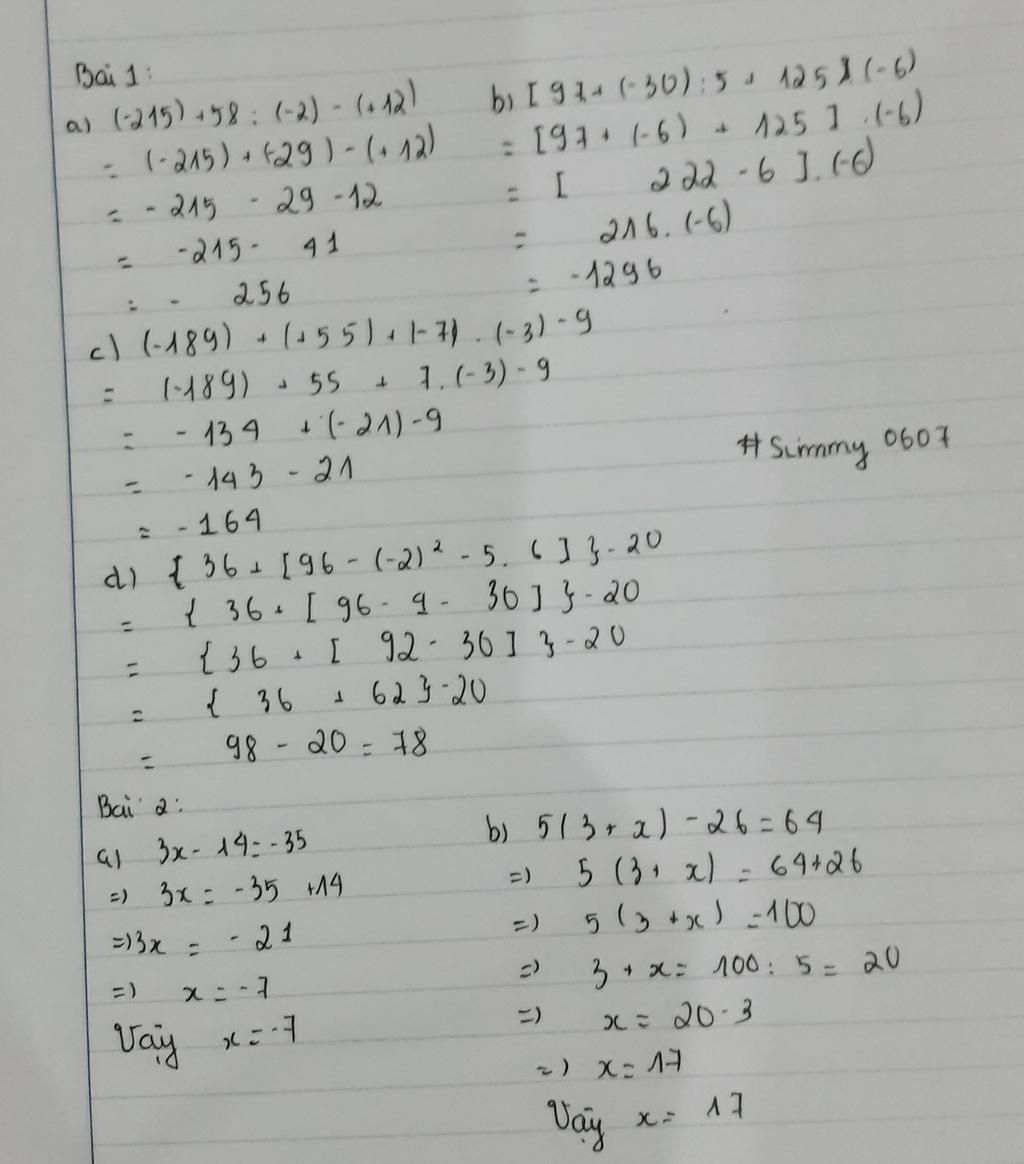 Bài 1:
a) (-215) + 58 : (-2) - (+12)
= (-215) + (-29) - (+12)
= - 215 - 29 - 12
= -215 - 41
= - 256
b) [ 97 + (-30) : 5 + 125 ] (-6)
= [97 + (-6) + 125 ] . (-6)
= [ 222 - 6 ] . (-6)
= 216 . (-6)
= -1296
c) (-189) + (+55) + |-7| . (-3) - 9
= (-189) + 55 + 7 . (-3) - 9
= - 134 + (-21) - 9
= - 143 - 21
= - 164
#Simmy 0607
d) { 36 + [96 - (-2)² - 5 . 6 ] } - 20
= { 36 + [ 96 - 4 - 30 ] } - 20
= { 36 + [ 92 - 30 ] } - 20
= { 36 + 62 } - 20
= 98 - 20 = 78
Bài 2:
a) 3x - 14 = -35
=) 3x = -35 + 14
=) 3x = - 21
=) x = - 7
Vậy x = -7
b) 5 ( 3 + x ) - 26 = 64
=) 5 ( 3 + x ) = 64 + 26
=) 5 ( 3 + x ) = 100
=) 3 + x = 100 : 5 = 20
=) x = 20 - 3
=) x = 17
Vậy x = 17